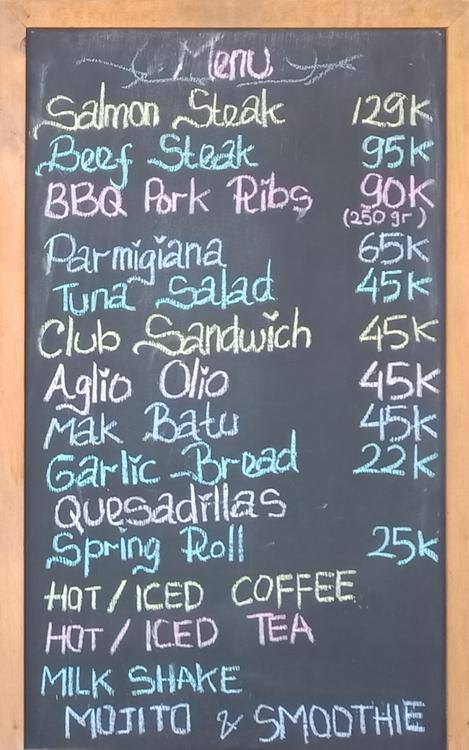 Menu
Salmon Steak 129K
Beef Steak 95K
BBQ Pork Ribs 90K
(250 gr)
Parmigiana 65K
Tuna Salad 45K
Club Sandwich 45K
Aglio Olio 45K
Mak Batu 45K
Garlic Bread 22K
Quesadillas
Spring Roll 25K
HOT/ICED COFFEE
HOT/ICED TEA
MILK SHAKE
MOJITO & SMOOTHIE